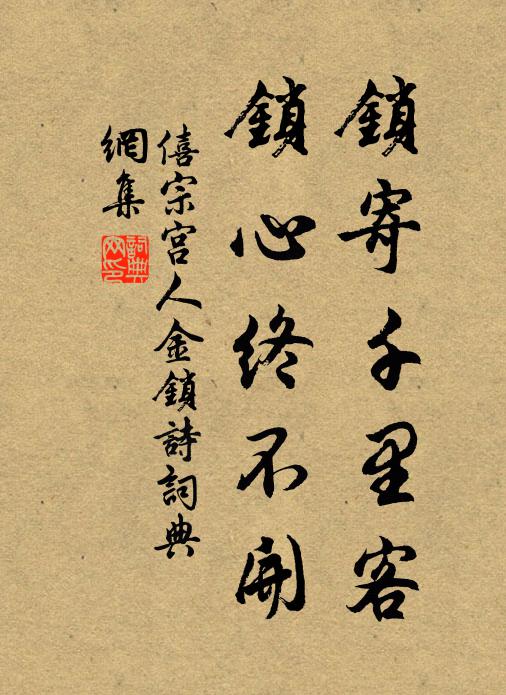 鎖寄千里客
鎖心終不開
僖宗宫人金鎖詩詞典
網集
詞典網印